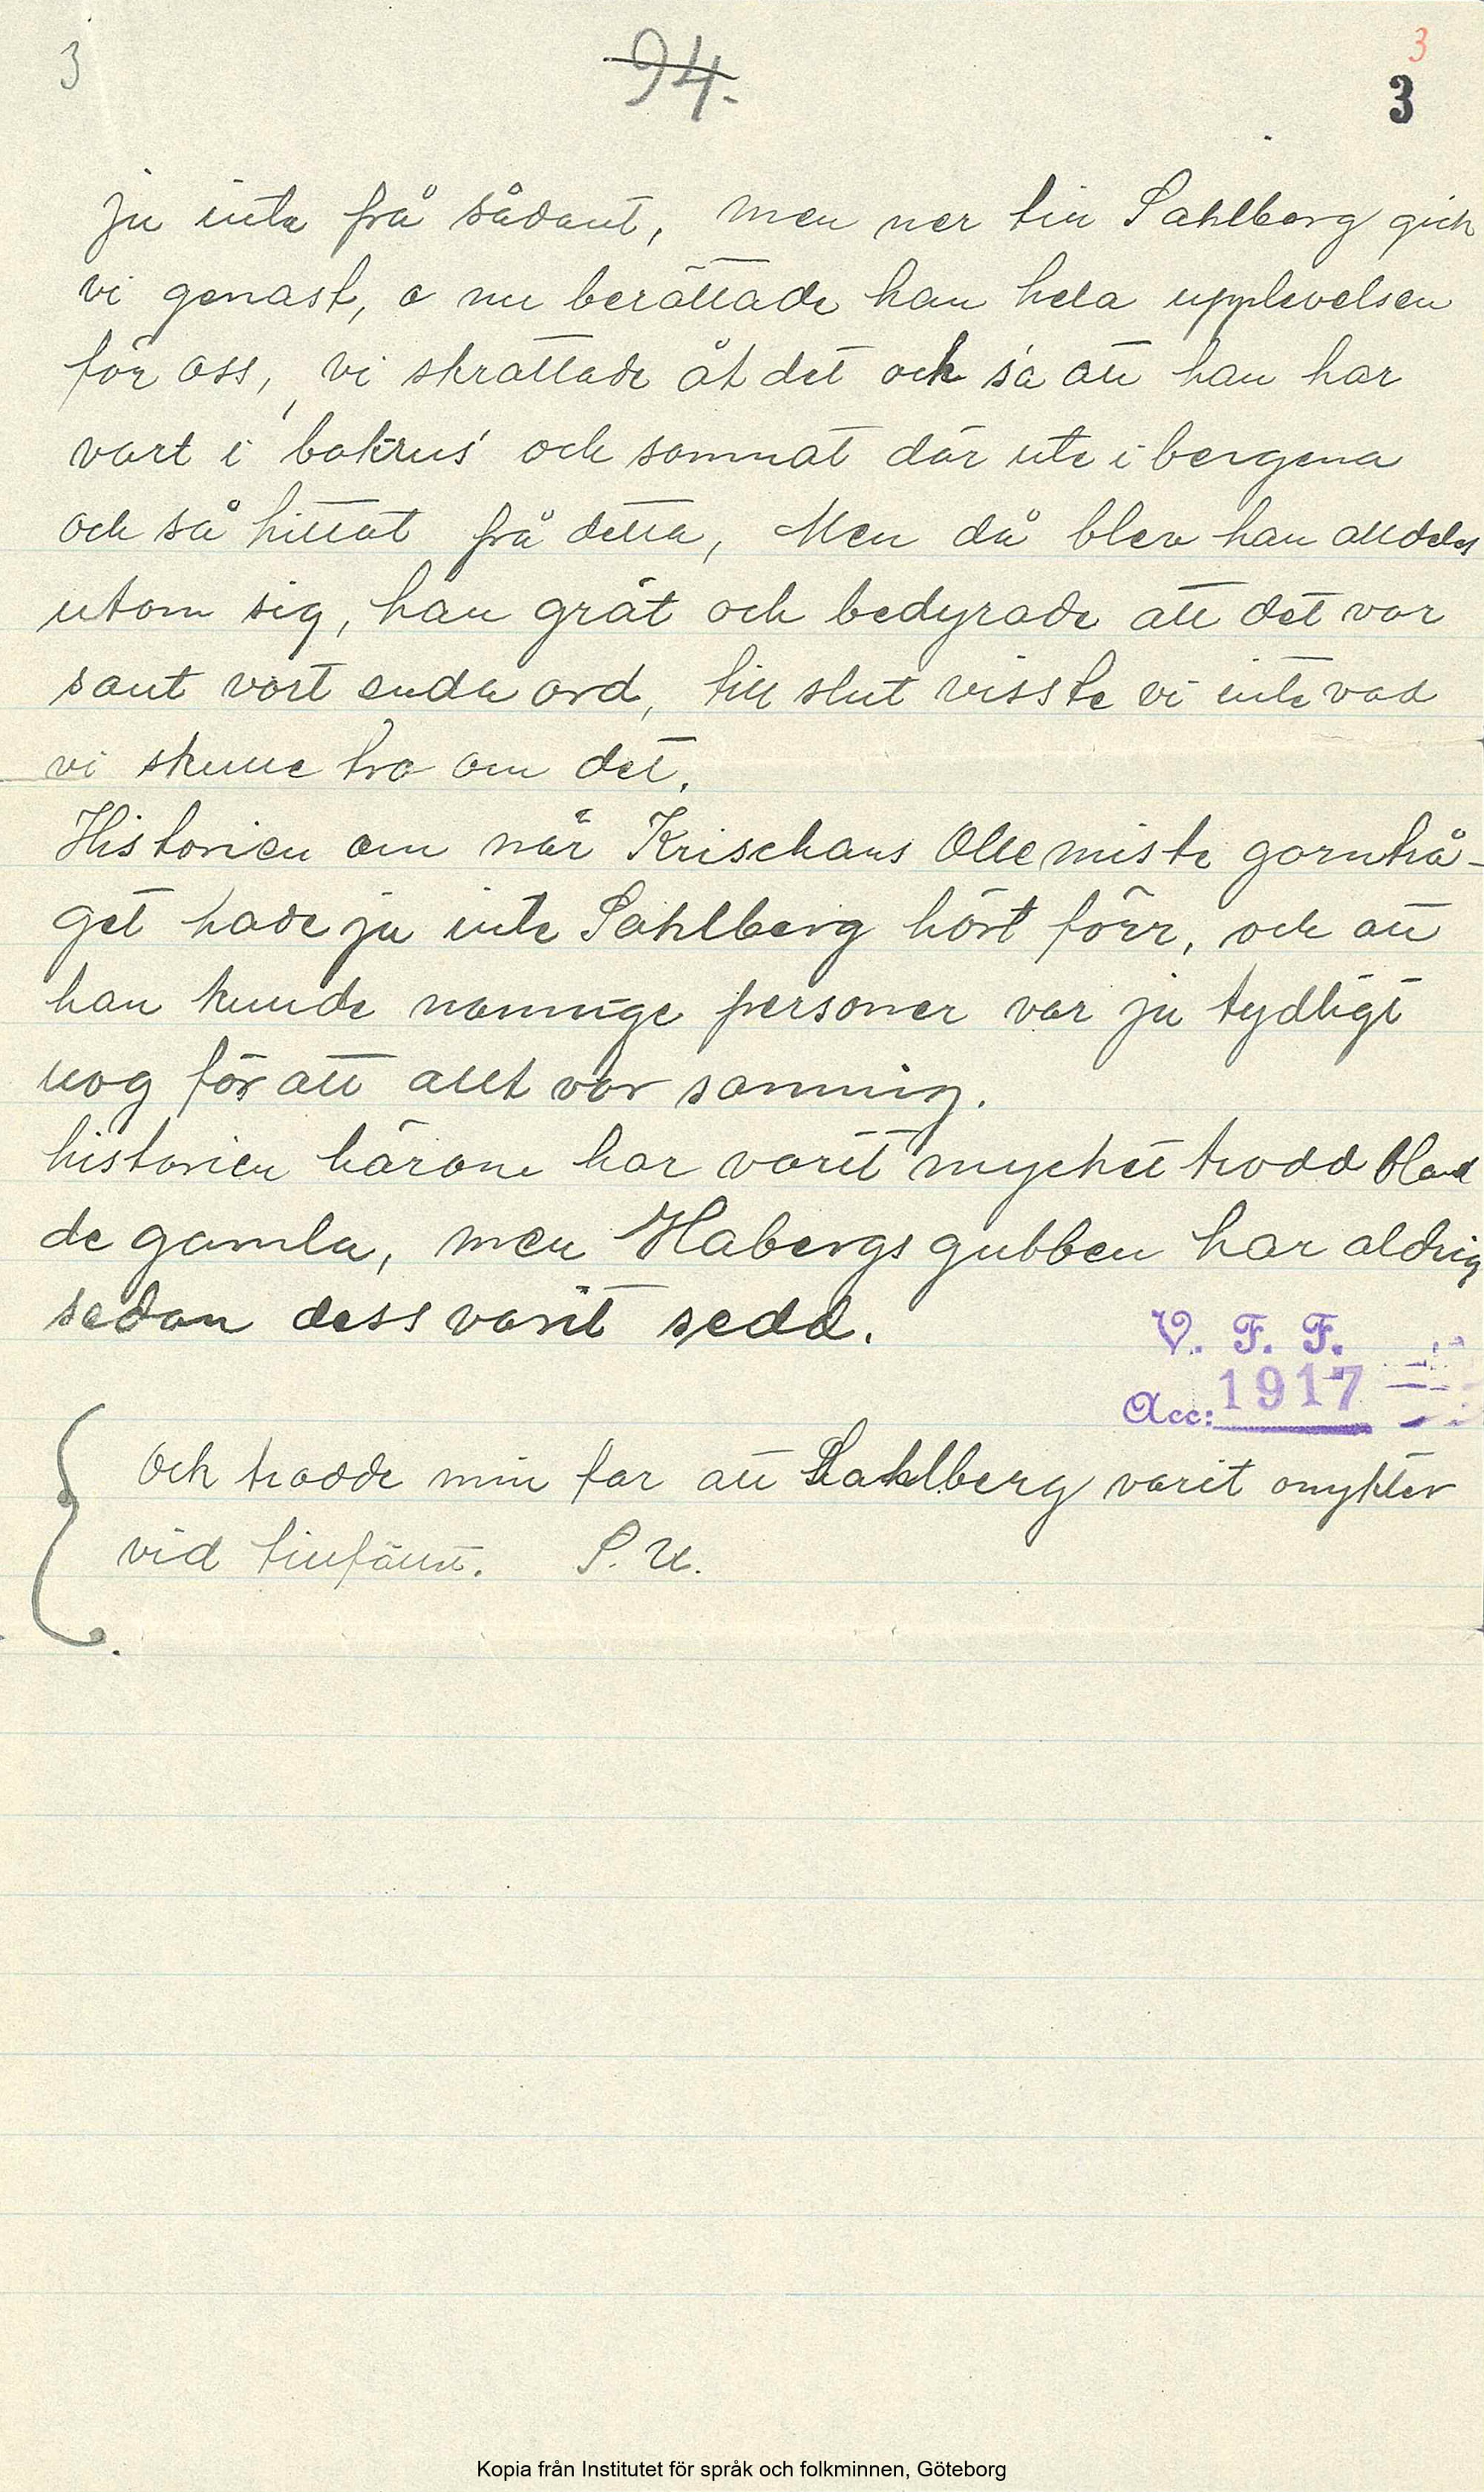 3 94. 3
3
ju inte frå sådant, men ner till Sahlberg gick
vi genast, o nu berättade han hela upplevelsen
för oss, vi skrattade åt det och sa att han har
vart i 'bakrus' och somnat där ute i bergena
och så hittat frå detta, Men då blev han alldeles
utom sig, han grät och bedyrade att det var
sant vart enda ord, till slut visste vi inte vad
vi skulle tro om det.
Historien om när Krischans Olle miste garnhå-
get hade ju inte Sahlberg hört förr, och att
han kunde namnge personer var ju tydligt
nog för att allt var sanning.
historien härom har varit mycket trodd bland
de gamla, men Habergsgubben har aldrig
sedan dess varit sedd.
V. F. F.
Acc: 1917
Och trodde min far att Sahlberg varit onykter
vid tillfället. S. U.
Kopia från Institutet för språk och folkminnen, Göteborg